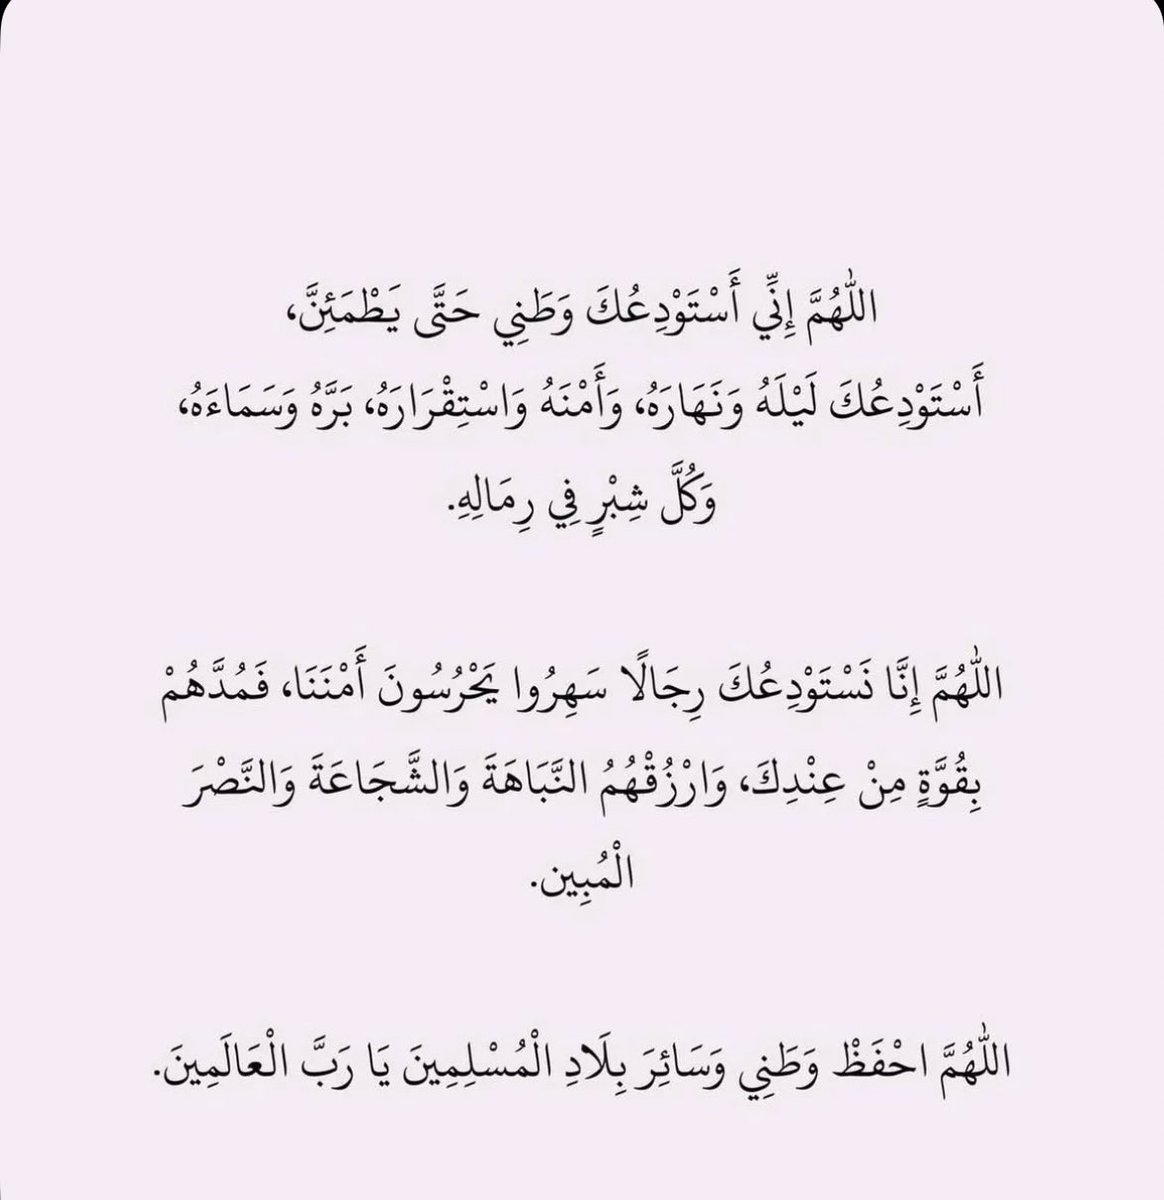 اللَّهُمَّ إِنِّي أَسْتَوْدِعُكَ وَطَنِي حَتَّى يَطْمَئِنَّ،
أَسْتَوْدِعُكَ لَيْلَهُ وَنَهَارَهُ، وَأَمْنَهُ وَاسْتِقْرَارَهُ، بَرَّهُ وَسَمَاءَهُ،
وَكُلَّ شِبْرٍ فِي رِمَالِهِ.
اللَّهُمَّ إِنَّا نَسْتَوْدِعُكَ رِجَالًا سَهِرُوا يَحْرُسُونَ أَمْنَنَا، فَمُدَّهُمْ
بِقُوَّةٍ مِنْ عِنْدِكَ، وَارْزُقْهُمُ النَّبَاهَةَ وَالشَّجَاعَةَ وَالنَّصْرَ
الْمُبِين.
اللَّهُمَّ احْفَظْ وَطَنِي وَسَائِرَ بِلَادِ الْمُسْلِمِينَ يَا رَبَّ الْعَالَمِينَ.